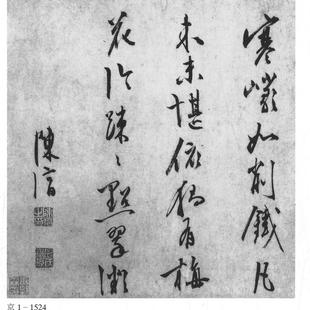 寒巖如削鐵凡
木未堪依獨有梅
花疎〻點翠微
陳
京 1－1524